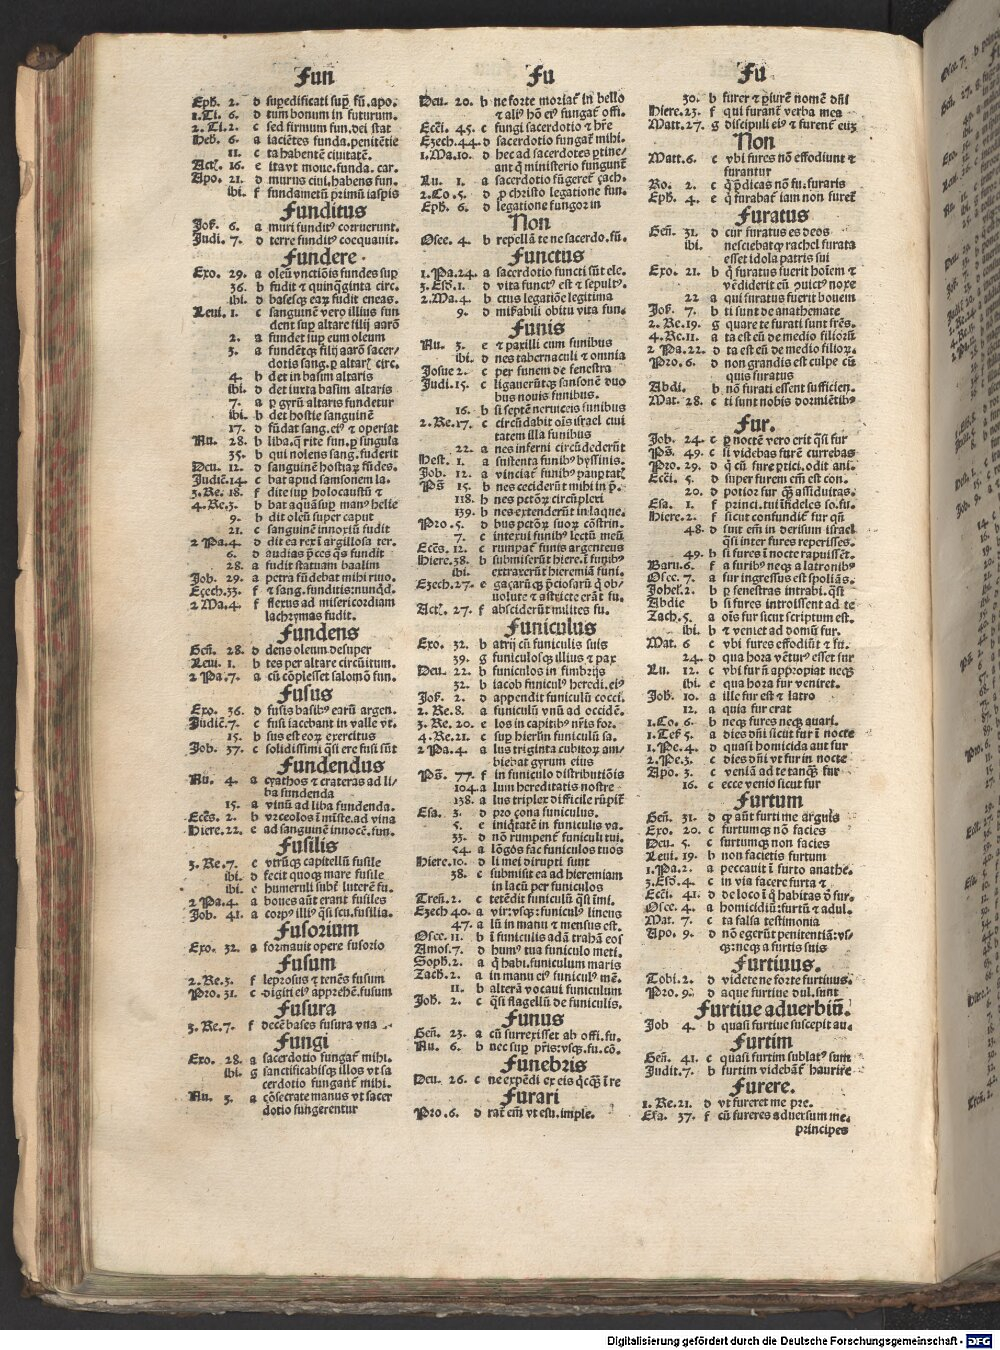 Fun
Eph. 2. d supedificati sup̄ fū. apo.
1. Ti. 6. d tum bonum in futurum.
2. Ti. 2. c sed firmum fun. dei stat
Heb. 6. a iaciētes funda. penitētie
11. c ta habentē ciuitatē.
Act. 16. e ita vt moue. funda. car.
Apo. 21. d murus ciui. habens fun.
ibi. f fundametū primū iaspis
Funditus
Job. 6. a muri fundit⁹ corruerunt.
Judi. 7. d terre fundit⁹ coequauit.
Fundere.
Exo. 29. a oleū vnctiōis fundes sup
36. b fudit et quinq̄ginta circ.
ibi. d basesq; eaꝝ fudit eneas.
Leui. 1. c sanguinē vero illius fun
dent sup altare filij aarō
2. a fundet sup eum oleum
3. a fundētq; filij aarō sacer/
dotis sang. p altar̄ circ.
4. b det in basim altaris
ibi. d det iuxta basim altaris
7. a p gyrū altaris fundetur
ibi. b det hostie sanguinē
17. d fūdat sang. ei⁹ et operiat
Nu. 28. b liba. q̄ rite fun. p singula
35. b qui nolens sang. fuderit
Deu. 12. d sanguinē hostiaꝝ fūdes.
Judic̄. 14. c bat apud samsonem la.
3. Re. 18. f dite sup holocaustū et
4. Re. 3. b bat aquā sup man⁹ helie
9. b dit oleū super caput
21. c sanguinē innoxiū fudit
2 Pa. 4. d dit ea rex ī argillosa ter.
6. d audias p̄ces q̄s fundit
28. a fudit statuam baalim
Job. 29. a petra fūdebat mihi riuo.
Eȝech. 33. f et sang. funditis: nunqd.
2 Ma. 4. f flexus ad misericordiam
lachrymas fudit.
Fundens
Gen̄. 28. d dens oleum desuper
Leui. 1. b tes per altare circūitum.
2 Pa. 7. a cū cōplesset salomō fun.
Fusus
Exo. 36. d fusis basib⁹ earū argen.
Judic̄. 7. c fusi iacebant in valle vt.
15. b sus est eoꝝ exercitus
Job. 37. c solidissimi q̄si ere fusi sūt
Fundendus
Nu. 4. a cyathos et crateras ad li/
ba fundenda
15. a vinū ad liba fundenda.
Ecc̄s. 2. b vrceolos ī miste. ad vina
Hiere. 22. e ad sanguinē innocē. fun.
Fusilis
3. Re. 7. c vtrūq; capitellū fusile
ibi. d fecit quoq; mare fusile
ibi. e humeruli subē luterē fu.
2 Pa. 4. a boues aūt erant fusiles
Job. 41. a corp⁹ illi⁹ q̄si scu. fusilia.
Fusorium
Exo. 32. a formauit opere fusorio
Fusum
2. Re. 3. f leprosus et tenēs fusum
Pro. 31. c digiti ei⁹ apprehē. fusum
Fusura
3. Re. 7. f decē bases fusura vna
Fungi
Exo. 28. a sacerdotio fungat̄ mihi.
ibi. g sanctificabisq; illos vt sa
cerdotio fungant̄ mihi.
Nu. 3. a cōsecrate manus vt sacer
dotio fungerentur
Fu
Deu. 20. b ne forte moriat̄ in bello
et ali⁹ hō ei⁹ fungat̄ offi.
Ecc̄i. 45. c fungi sacerdotio et h̄re
Eȝech. 44. d sacerdotio fungat̄ mihi.
1. Ma. 10. d hec ad sacerdotes ptine/
ant q̄ ministerio fungunt̄
Lu. 1. a sacerdotio fūgeret̄ ȝach.
2. Co. 5. d p christo legatione fun.
Eph. 6. d legatione fungor in
Non
Osee. 4. b repellā te ne sacerdo. fū.
Functus
1. Pa. 24. a sacerdotio functi sūt ele.
3. Esd̄. 1. d vita funct⁹ est et sepult⁹.
2. Ma. 4. b ctus legatiōe legitima
9. d mirabili obitu vita fun.
Funis
Nu. 3. e et paxilli cum funibus
ibi. d nes tabernaculi et omnia
Josue 2. c per funem de fenestra
Judi. 15. c ligauerūtq; sansonē duo
bus nouis funibus.
16. b si septē neruiceis funibus
2. Re. 17. c circūdabit oīs israel ciui
tatem illa funibus
22. a nes inferni circūdederūt
Hest. 1. a sustenta funib⁹ byssinis.
Job. 12. a vinciat̄ funib⁹ paupertat̄
Ps̄ 15. b nes ceciderūt mihi in p̄.
118. b nes petōꝝ circūplexi
139. b nes extenderūt in laque.
Pro. 5. d bus petōꝝ suoꝝ cōstrin.
7. c intexui funib⁹ lectū meū
Ecc̄s. 12. c rumpat̄ funis argenteus
Hiere. 38. b submiserūt hiere. ī funib⁹
ibi. extraxerūt hieremiā funi.
Eȝech. 27. e gaȝarūq; p̄ciosarū q̄ ob/
uolute et astricte erāt fu.
Act. 27. f absciderūt milites fu.
Funiculus
Exo. 32. b atrij cū funiculis suis
39. g funiculosq; illius et pax
Deu. 22. b funiculos in fimbrijs
32. b iacob funicul⁹ heredi. ei⁹
Jos. 2. d appendit funiculū cocci.
2. Re. 8. a funiculū vnū ad occidē.
3. Re. 20. e los in capitib⁹ nr̄is for.
4. Re. 21. c sup hierlm̄ funiculū sa.
2 Pa. 4. a lus triginta cubitoꝝ am/
biebat gyrum eius
Ps̄. 77. f in funiculo distributiōis
104. a lum hereditatis nostre
138. a lus triplex difficile rūpit̄
Esa. 3. d pro ȝona funiculus.
5. e iniq̄tatē in funiculis va.
33. d nō rumpent̄ funiculi tui.
54. a lōgos fac funiculos tuos
Hiere. 10. d li mei dirupti sunt
38. c submisit ea ad hieremiam
in lacū per funiculos
Tren̄. 2. c tetēdit funiculū q̄si imi.
Eȝech 40. a vir: vsq;: funicul⁹ lineus
47. a lū in manu et mensus est.
Osee. 11. b ī funiculis adā trahā eos
Amos. 7. d hum⁹ tua funiculo meti.
Soph. 2. a q̄ habi. funiculum maris
Zach. 2. a in manu ei⁹ funicul⁹ mē.
11. b alterā vocaui funiculum
Joh. 2. c q̄si flagellū de funiculis.
Funus
Gen̄. 23. a cū surrexisset ab offi. fu.
Nu. 6. b nec sup p̄ris: vsq;. fu. cō.
Funebris
Deu. 26. c ne expēdi ex eis q̄cq; ī re
Furari
Pro. 6. d rat̄ em̄ vt esu. imple.
Fu
30. b furer et p̄iurē nomē dn̄i
Hiere. 23. f qui furant̄ verba mea
Matt. 27. g discipuli ei⁹ et furent̄ euȝ
Non
Matt. 6. c vbi fures nō effodiunt et
furantur
Ro. 2. c q̄ p̄dicas nō fu. furaris
Eph. 4. e q̄ furabat̄ iam non furet̄
Furatus
Gen̄. 31. d cur furatus es deos
ibi. nesciebatq; rachel furata
esset idola patris sui
Exo. 21. b q̄ furatus fuerit hoīem et
vēdiderit eū ȝuict⁹ noxe
22 a qui furatus fuerit bouem
Jos. 7. b ti sunt de anathemate
2. Re. 19. g quare te furati sunt fr̄es.
4. Re. 11. a ta est eū de medio filiorū
2 Pa. 22. d ta est eū de medio filioꝝ.
Pro. 6. d non grandis est culpe cū
quis furatus
Abdi. b nō furati essent sufficien.
Mat. 28. c ti sunt nobis dormiētib⁹
Fur.
Job. 24. c p noctē vero erit q̄si fur
Ps̄. 49. c si videbas furē currebas
Pro. 29. d q̄ cū fure ptici. odit ani.
Ecc̄i. 5. d super furem em̄ est con.
20. d potior fur q̄ȝ assiduitas.
Esa. 1. f princi. tui īfideles so. fu.
Hiere. 2. f sicut confundit̄ fur qn̄
48. d sunt em̄ in derisum israel
q̄si inter fures reperisses.
49. b si fures ī nocte rapuissēt.
Baru. 6. f a furib⁹ neq; a latronib⁹
Osee. 7. a fur ingressus est spoliās.
Johel. 2. b p fenestras intrabi. q̄si
Abdie b si fures introissent ad te
Zach. 5. a oīs fur sicut scriptum est.
ibi. b et veniet ad domū fur.
Mat. 6 c vbi fures effodiūt et fu.
24. d qua hora vētur⁹ esset fur
Lu. 12. c vbi fur n̄ appropiat neq;
ibi. e qua hora fur veniret.
Joh. 10. a ille fur est et latro
12. a quia fur erat
1. Co. 6. b neq; fures neq; auari.
1. Tes̄ 5. a dies dn̄i sicut fur ī nocte
1. Pe. 4. d quasi homicida aut fur
2. Pe. 3. c dies dn̄i vt fur in nocte
Apo. 3. c veniā ad te tanq̄ȝ fur
16. c ecce venio sicut fur
Furtum
Gen̄. 31. d q̄ aūt furti me arguis
Exo. 20. c furtumq; nō facies
Deu. 5. c furtumq; non facies
Leui. 19. b non facietis furtum
1. Pa. 2. a peccauit ī furto anathe.
3. Esd̄. 4. c in via facere furta et
Ecc̄i. 41. d de loco ī q̄ habitas d̄ fur.
Osee. 4. a homicidiū: furtū et adul.
Mat. 7. c ta falsa testimonia
Apo. 9. d nō egerūt penitentiā: vs/
q;: neq; a furtis suis
Furtiuus.
Tobi. 2. d videte ne forte furtiuus.
Pro. 9. d aque furtiue dul. sunt
Furtiue aduerbiū.
Job 4. b quasi furtiue suscepit au.
Furtim
Gen̄. 41. c quasi furtim sublat⁹ sum
Judit. 7. b furtim videbāt̄ haurire
Furere.
1. Re. 21. d vt fureret me pre.
Esa. 37. f cū fureres aduersum me.
principes
Digitalisierung gefördert durch die Deutsche Forschungsgemeinschaft - DFG